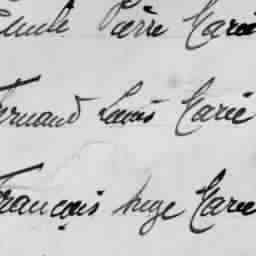 Emile Pierre Marie
Fernand Louis Marie
François Ange Marie